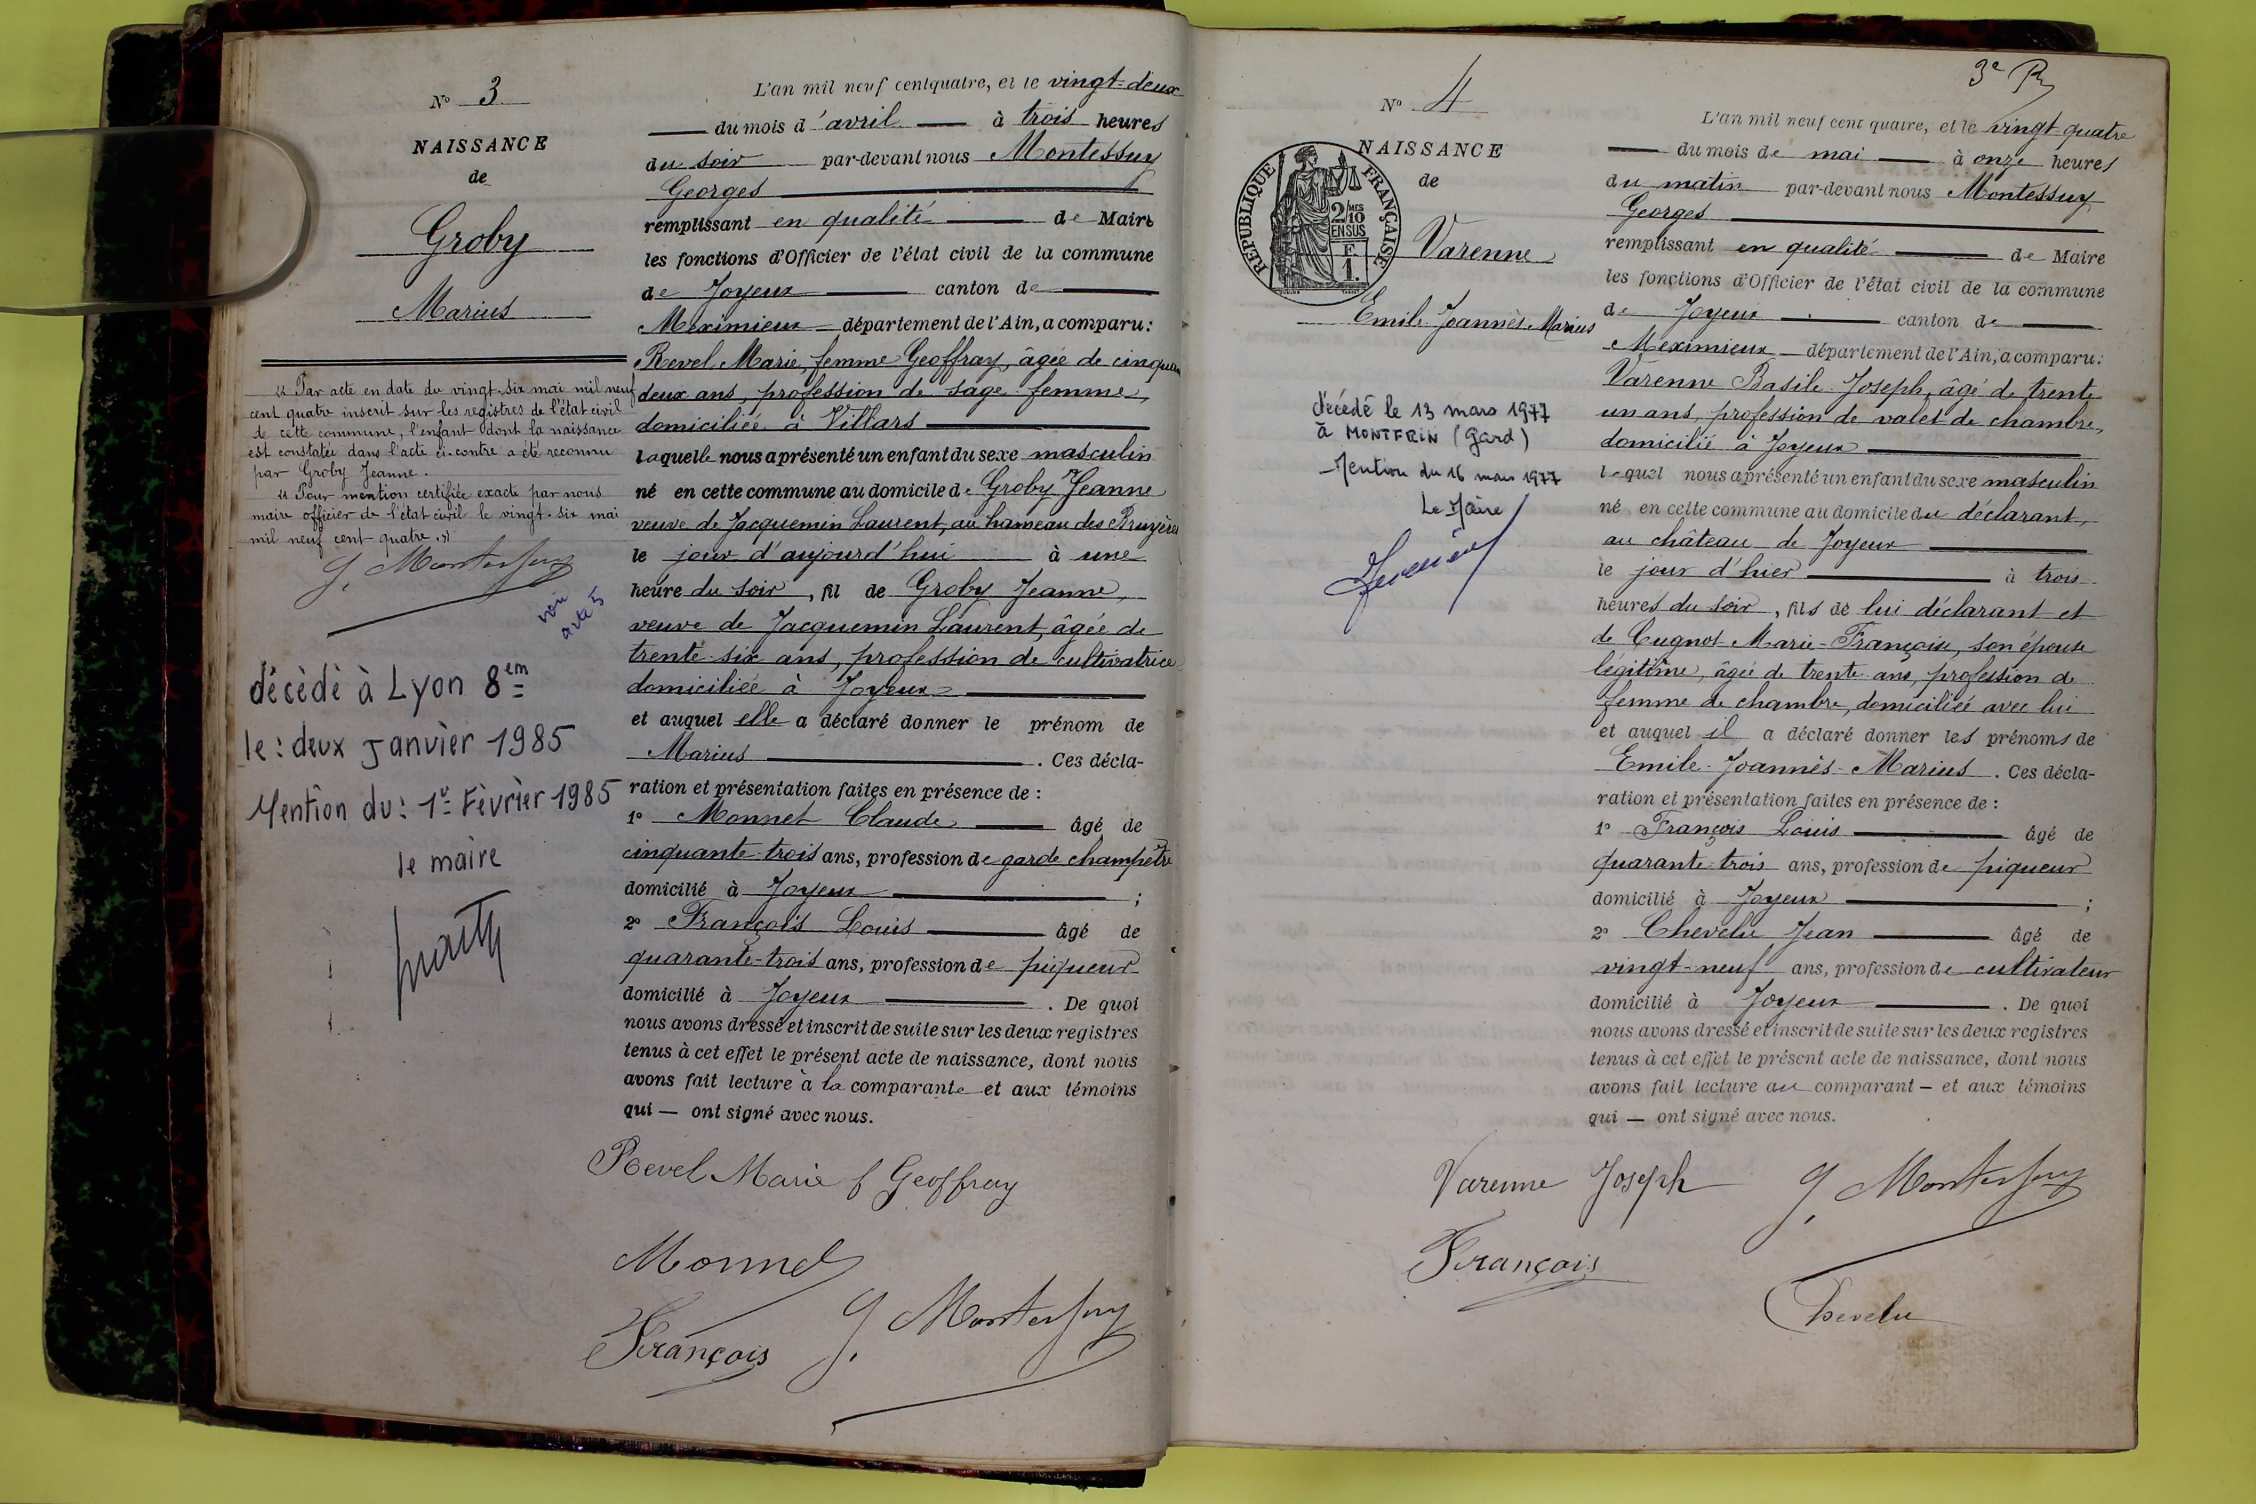 N° 3
NAISSANCE
de
Groby
Marius
" Par acte en date du vingt-six mai mil neuf
cent quatre inscrit sur les registres de l'état civil
de cette commune, l'enfant dont la naissance
est constatée dans l'acte ci-contre a été reconnu
par Groby Jeanne.
" Pour mention certifiée exacte par nous
maire officier de l'état civil le vingt-six mai
mil neuf cent quatre."
G. Montessuy
voir
acte 5
décédé à Lyon 8em
le : deux Janvier 1985
Mention du : 1er Février 1985
le maire
L'an mil neuf cent quatre, et le vingt-deux
du mois d'avril à trois heures
du soir par-devant nous Montessuy
Georges
remplissant en qualité de Maire
les fonctions d'Officier de l'état civil de la commune
de Joyeux canton de
Meximieux département de l'Ain, a comparu :
Revel Marie, femme Geoffray, âgée de cinquan
deux ans, profession de sage femme,
domiciliée à Villars
laquelle nous a présenté un enfant du sexe masculin
né en cette commune au domicile de Groby Jeanne
veuve de Jacquemin Laurent, au hameau des Bruyères
le jour d'aujourd'hui à une
heure du soir, fil de Groby Jeanne,
veuve de Jacquemin Laurent, âgée de
trente-six ans, profession de cultivatrice
domiciliée à Joyeux
et auquel elle a déclaré donner le prénom de
Marius . Ces décla-
ration et présentation faites en présence de :
1° Monnet Claude âgé de
cinquante-trois ans, profession de garde champêtre
domicilié à Joyeux ;
2° François Louis âgé de
quarante-trois ans, profession de piqueur
domicilié à Joyeux . De quoi
nous avons dressé et inscrit de suite sur les deux registres
tenus à cet effet le présent acte de naissance, dont nous
avons fait lecture à la comparante et aux témoins
qui — ont signé avec nous.
Revel Marie f Geoffray
Monnet
François G. Montessuy
3e
N° 4
NAISSANCE
de
REPUBLIQUE FRANÇAISE
2/MES
10
EN SUS
F.
1.
Varenne
Emile Joannès Marius
décédé le 13 mars 1977
à MONTFRIN (Gard)
Mention du 16 mars 1977
Le Maire
L'an mil neuf cent quatre, et le vingt-quatre
du mois de mai à onze heures
du matin par-devant nous Montessuy
Georges
remplissant en qualité de Maire
les fonctions d'Officier de l'état civil de la commune
de Joyeux canton de
Meximieux département de l'Ain, a comparu :
Varenne Basile Joseph, âgé de trente
un ans, profession de valet de chambre,
domicilié à Joyeux
lequel nous a présenté un enfant du sexe masculin
né en cette commune au domicile du déclarant,
au château de Joyeux
le jour d'hier à trois
heures du soir, fils de lui déclarant et
de Cugnot Marie-Françoise, son épouse
légitime, âgée de trente ans, profession de
femme de chambre, domiciliée avec lui
et auquel il a déclaré donner les prénoms de
Emile-Joannès-Marius . Ces décla-
ration et présentation faites en présence de :
1° François Louis âgé de
quarante-trois ans, profession de piqueur
domicilié à Joyeux ;
2° Chevelu Jean âgé de
vingt-neuf ans, profession de cultivateur
domicilié à Joyeux . De quoi
nous avons dressé et inscrit de suite sur les deux registres
tenus à cet effet le présent acte de naissance, dont nous
avons fait lecture au comparant — et aux témoins
qui — ont signé avec nous.
Varenne Joseph G. Montessuy
François
Chevelu